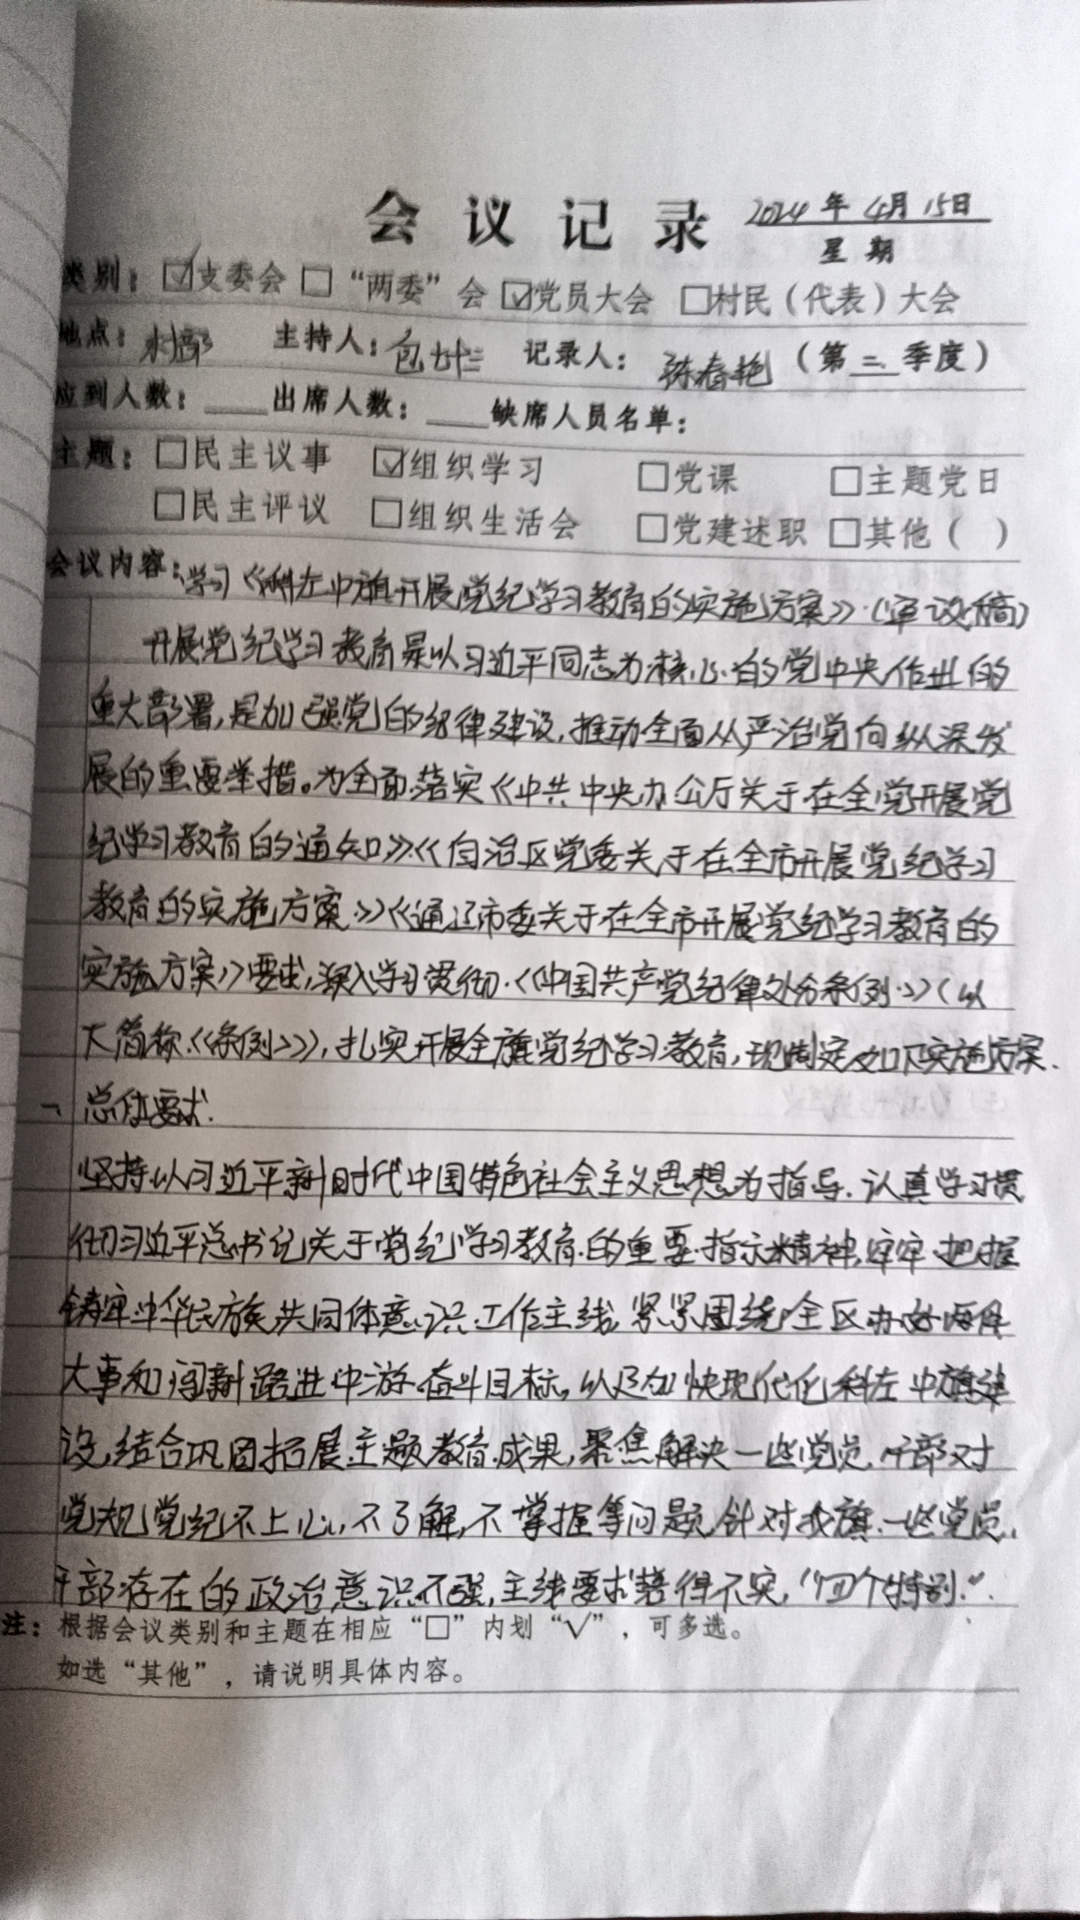 会议记录 2024年4月15日
星期
类别：☑支委会 □“两委”会 ☑党员大会 □村民（代表）大会
地点：村部 主持人：包 记录人：陈春艳（第二季度）
应到人数：____出席人数：____缺席人员名单：
主题：□民主议事 ☑组织学习 □党课 □主题党日
□民主评议 □组织生活会 □党建述职 □其他（ ）
会议内容：学习《科左中旗开展党纪学习教育的实施方案》（审议稿）
开展党纪学习教育是以习近平同志为核心的党中央作出的
重大部署，是加强党的纪律建设，推动全面从严治党向纵深发
展的重要举措。为全面落实《中共中央办公厅关于在全党开展党
纪学习教育的通知》《自治区党委关于在全市开展党纪学习
教育的实施方案》《通辽市委关于在全市开展党纪学习教育的
实施方案》要求，深入学习贯彻《中国共产党纪律处分条例》（以
下简称《条例》），扎实开展全旗党纪学习教育，现制定如下实施方案.
一 总体要求.
坚持以习近平新时代中国特色社会主义思想为指导.认真学习贯
彻习近平总书记关于党纪学习教育的重要指示精神，牢牢把握
铸牢中华民族共同体意识工作主线，紧紧围绕全区办好两件
大事和闯新路进中游奋斗目标，以及加快现代化科左中旗建
设，结合巩固拓展主题教育成果，聚焦解决一些党员、干部对
党规党纪不上心，不了解，不掌握等问题，针对我旗一些党员、
干部存在的政治意识不强，主线要求落得不实，“四个特别”
注：根据会议类别和主题在相应“□”内划“√”，可多选。
如选“其他”，请说明具体内容。